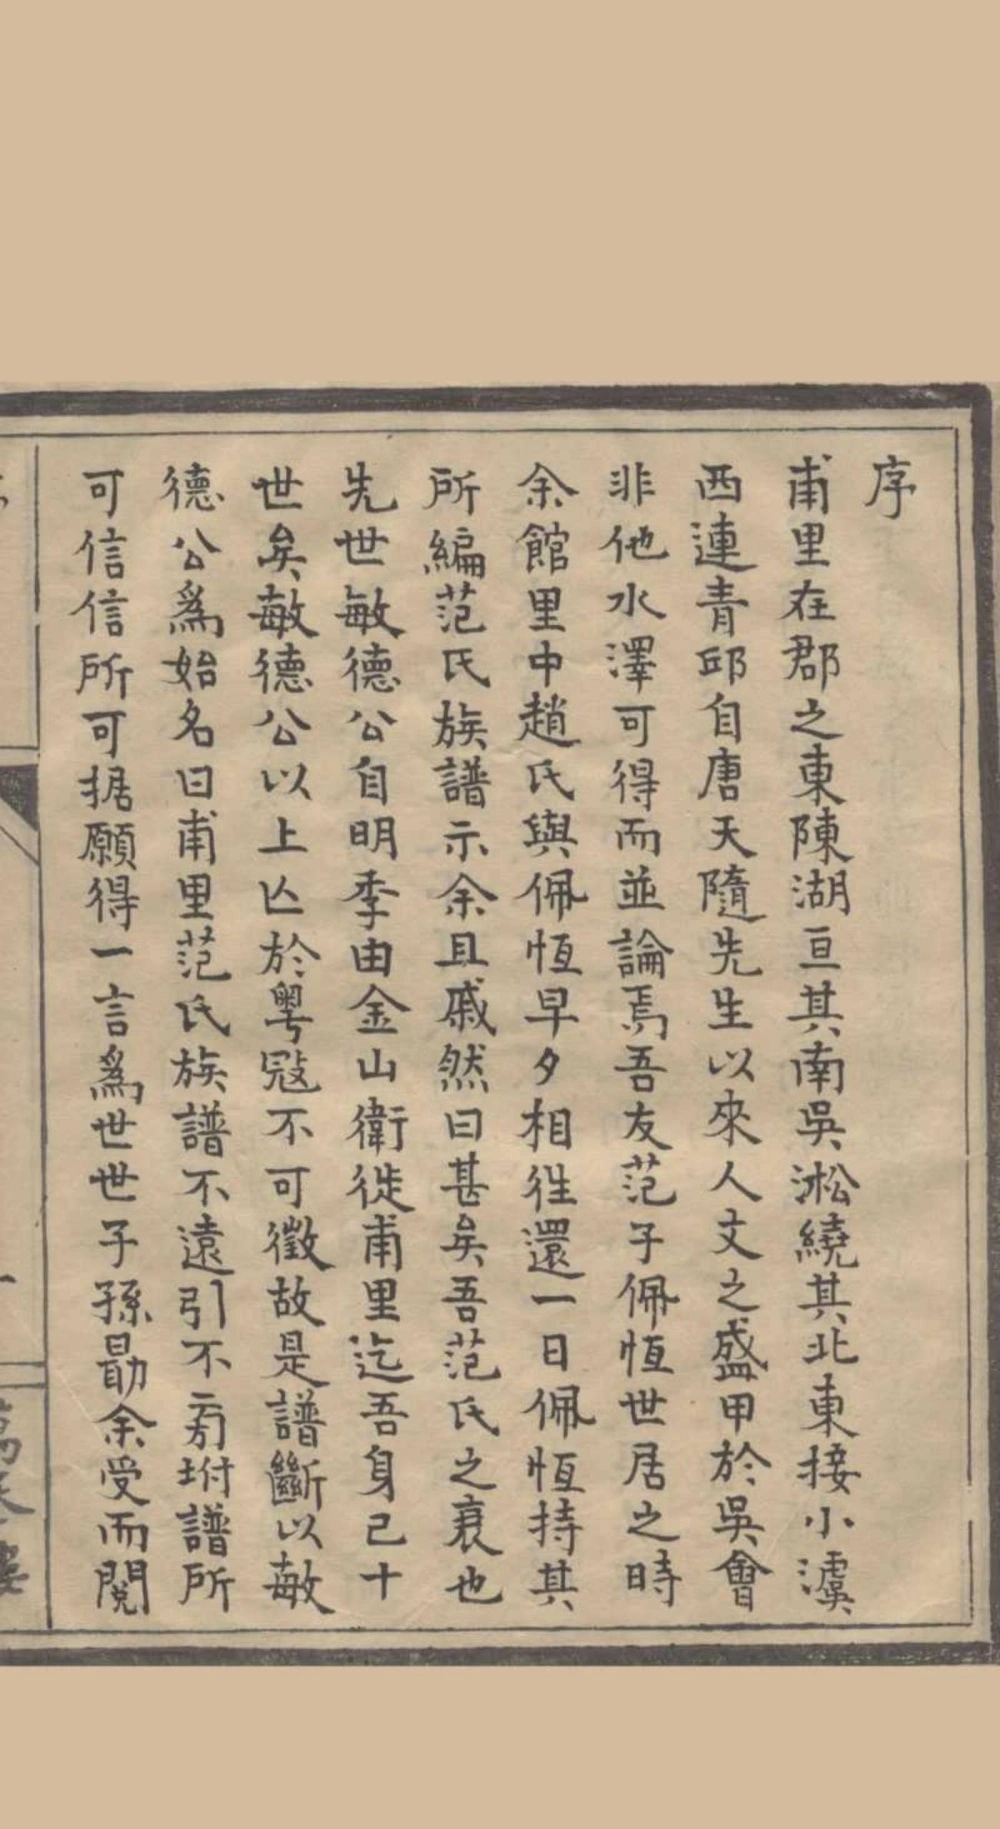 序
甫里在郡之東陳湖亘其南吳淞繞其北東接小澞
西連青邱自唐天隨先生以來人文之盛甲於吳會
非他水澤可得而並論焉吾友范子佩恆世居之時
余館里中趙氏與佩恆早夕相往還一日佩恆持其
所編范氏族譜示余且戚然曰甚矣吾范氏之衰也
先世敏德公自明季由金山衛徙甫里迄吾身已十
世矣敏德公以上亾於粵寇不可徵故是譜斷以敏
德公為始名曰甫里范氏族譜不遠引不旁坿譜所
可信信所可据願得一言為世世子孫勖余受而閱